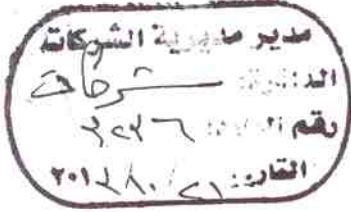 مدير مديرية الشركات
الدائرة: شركات
رقم
التاريخ: ٢٠١٤/١٠/٢١